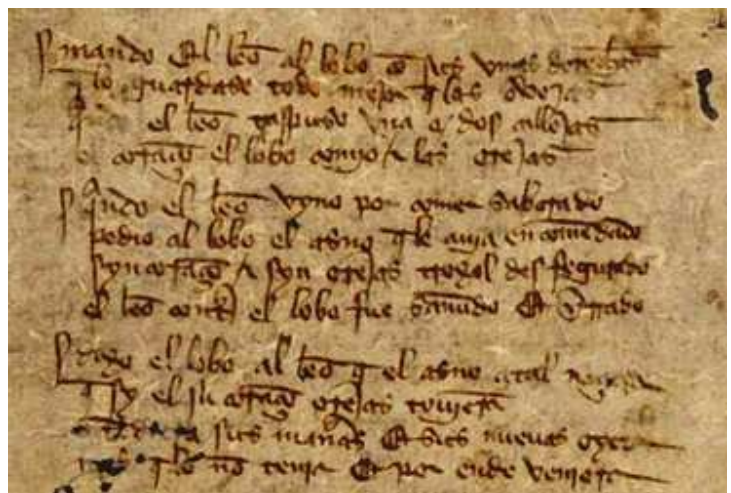 mando el leō al lobo cō sus vnas
q̄ lo guardase todo mejor q̄ las ovejas
el leō traspuso vna o dos callejas
el coraçō el lobo comyo & las orejas
quādo el leō vyno por comer saborado
pedio al lobo el asno q̄ le auja encomēdado
syn coraçō & syn orejas troxol desfegurado
el leō contͣ el lobo fue sañudo et yrado
dixo el lobo al leō q̄ el asno atal
q̄ sy el su coraçō orejas toujera
sus mañas et sus nueuas oyera
q̄ lo nō tenja et por ende venjera